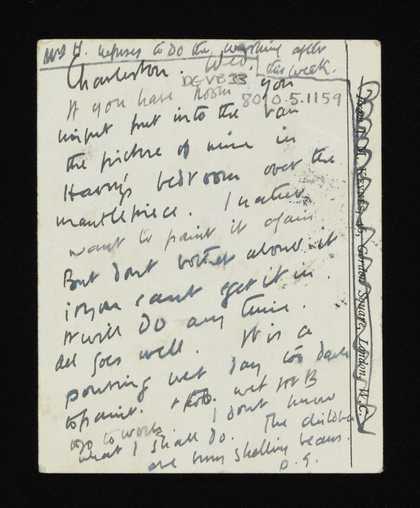 Mrs H. refuses to do the washing after
this week.
Charleston. Wed.
DEVB 33
If you have room you
8010.5.1159
might put into the van
the picture of mine in
Harry's bedroom over the
mantlepiece. I rather
want to paint it again
But dont bother about it
if you cant get it in.
It will do any time.
All goes well. It is a
pouring wet day too dark
to paint. & too wet for B
to go to work. I dont know
what I shall do. The children
are busy shelling beans.
D. G.
Gordon Square, London, W.C.